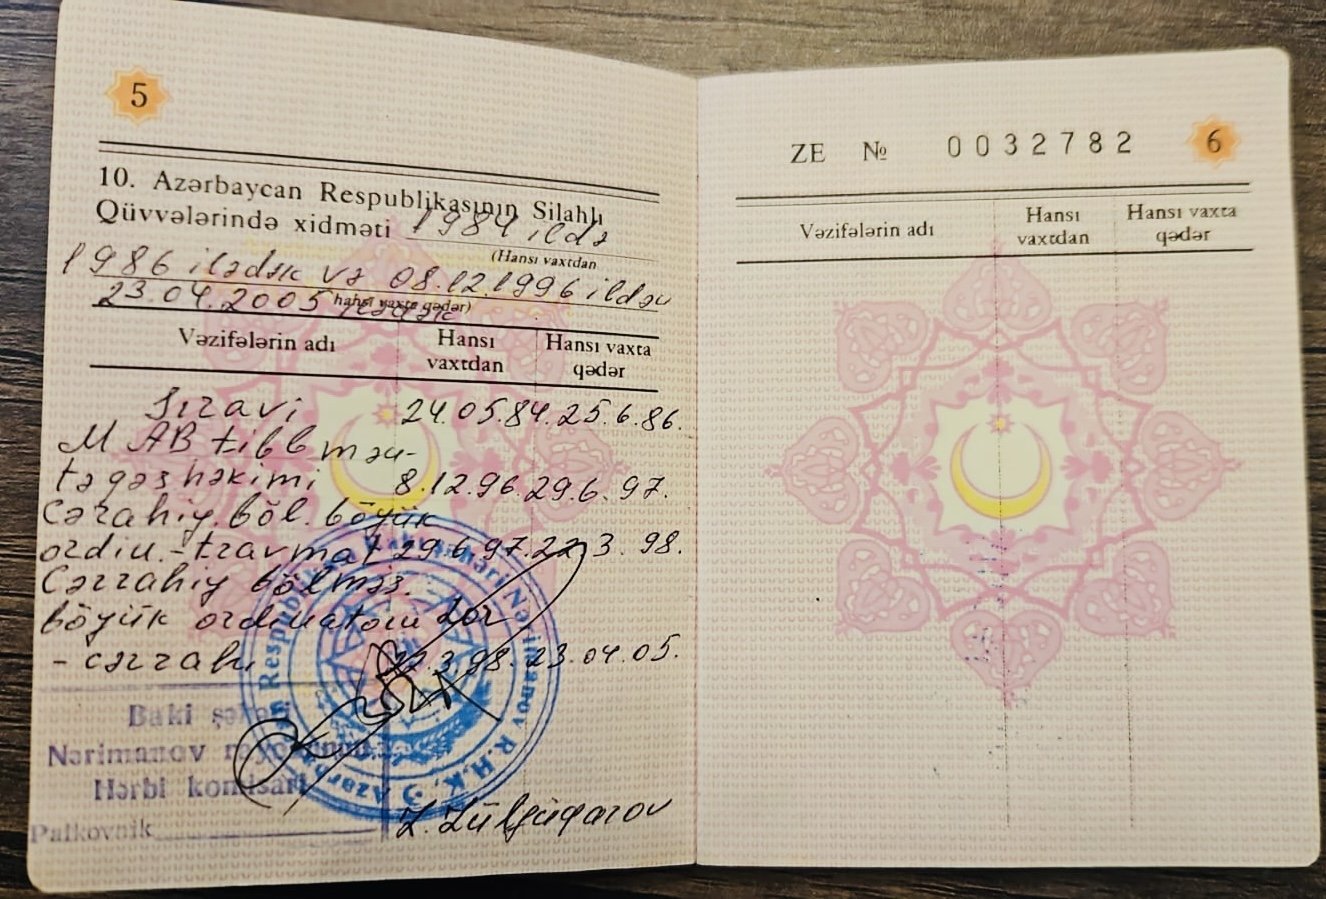 5
10. Azərbaycan Respublikasının Silahlı
Qüvvələrində xidməti 1984 ildə
(Hansı vaxtdan
1986 ilədək və 08.12.1996 ildən
23.04.2005
hansı vaxta qədər)
Vəzifələrin adı Hansı vaxtdan Hansı vaxta qədər
Sıravi 24.05.84. 25.6.86.
MAB tibb mən-
təqəs həkimi 8.12.96. 29.6.97.
Cərahiy. böl. böyük
ordin.-travmat 29.6.97. 22.3.98.
Cərrahiy bölməs.
böyük ordinatoru Lor
- cərrahı 22.3.98. 23.04.05.
Bakı şəhəri
Nərimanov rayonunun
Hərbi komisarı
Palkovnik
Z. Zülfüqarov
ZE № 0032782
6
Vəzifələrin adı Hansı vaxtdan Hansı vaxta qədər